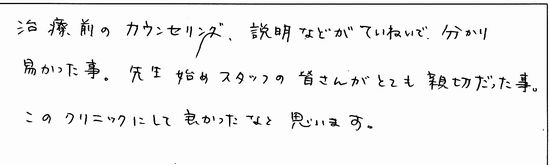 治療前のカウンセリング、説明などがていねいで、分かり
易かった事。先生始めスタッフの皆さんがとても親切だった事。
このクリニックにして良かったなと思います。